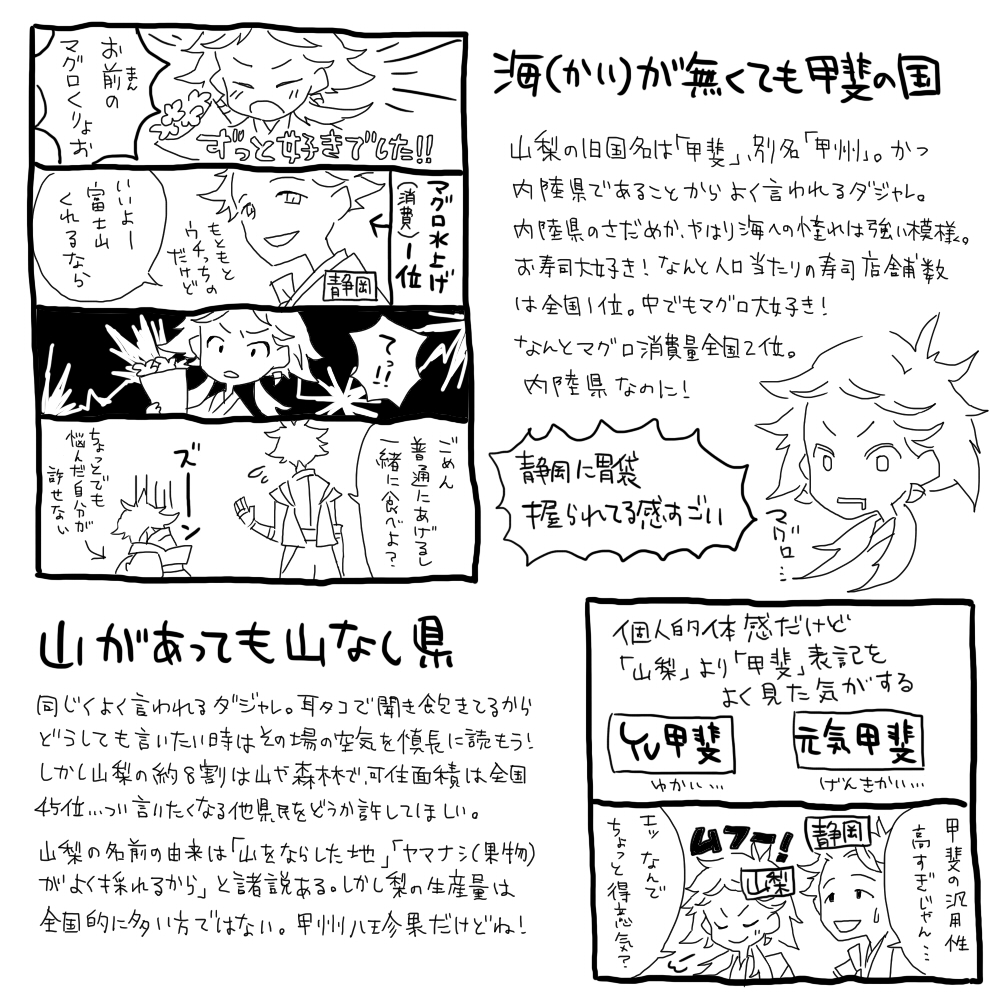 お前の
まん
マグロくりょお
ずっと好きでした!!
マグロ水上げ
(消費)1位
←
静岡
もともと
ウチっちの
だけど
いいよー
富士山
くれるなら
てっ!!
ごめん
普通にあげるし
一緒に食べよ?
ズーン
ちょっとでも
悩んだ自分が
許せない
海(かい)が無くても甲斐の国
山梨の旧国名は「甲斐」、別名「甲州」。かつ
内陸県であることからよく言われるダジャレ。
内陸県のさだめか、やはり海への憧れは強い模様。
お寿司大好き!なんと人口当たりの寿司店舗数
は全国1位。中でもマグロ大好き!
なんとマグロ消費量全国2位。
内陸県なのに!
静岡に胃袋
握られてる感すごい
マグロ…
山があっても山なし県
同じくよく言われるダジャレ。耳タコで聞き飽きてるから
どうしても言いたい時はその場の空気を慎長に読もう!
しかし山梨の約8割は山や森林で、可住面積は全国
45位…つい言いたくなる他県民をどうか許してほしい。
山梨の名前の由来は「山をならした地」「ヤマナシ(果物)
がよく採れるから」と諸説ある。しかし梨の生産量は
全国的に多い方ではない。甲州八珍果だけどね!
個人的体感だけど
「山梨」より「甲斐」表記を
よく見た気がする
YU甲斐
ゆかい…
元気甲斐
げんきかい…
甲斐の汎用性
高すぎじゃん…
静岡
ムフー!
山梨
エッなんで
ちょっと得意気?